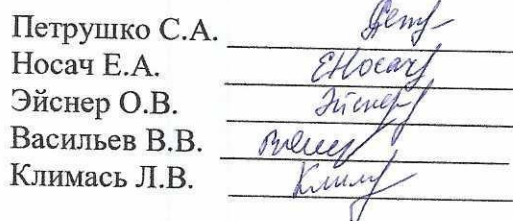 Петрушко С.А.
Носач Е.А. ЕНосач
Эйснер О.В. Эйснер
Васильев В.В.
Климась Л.В.